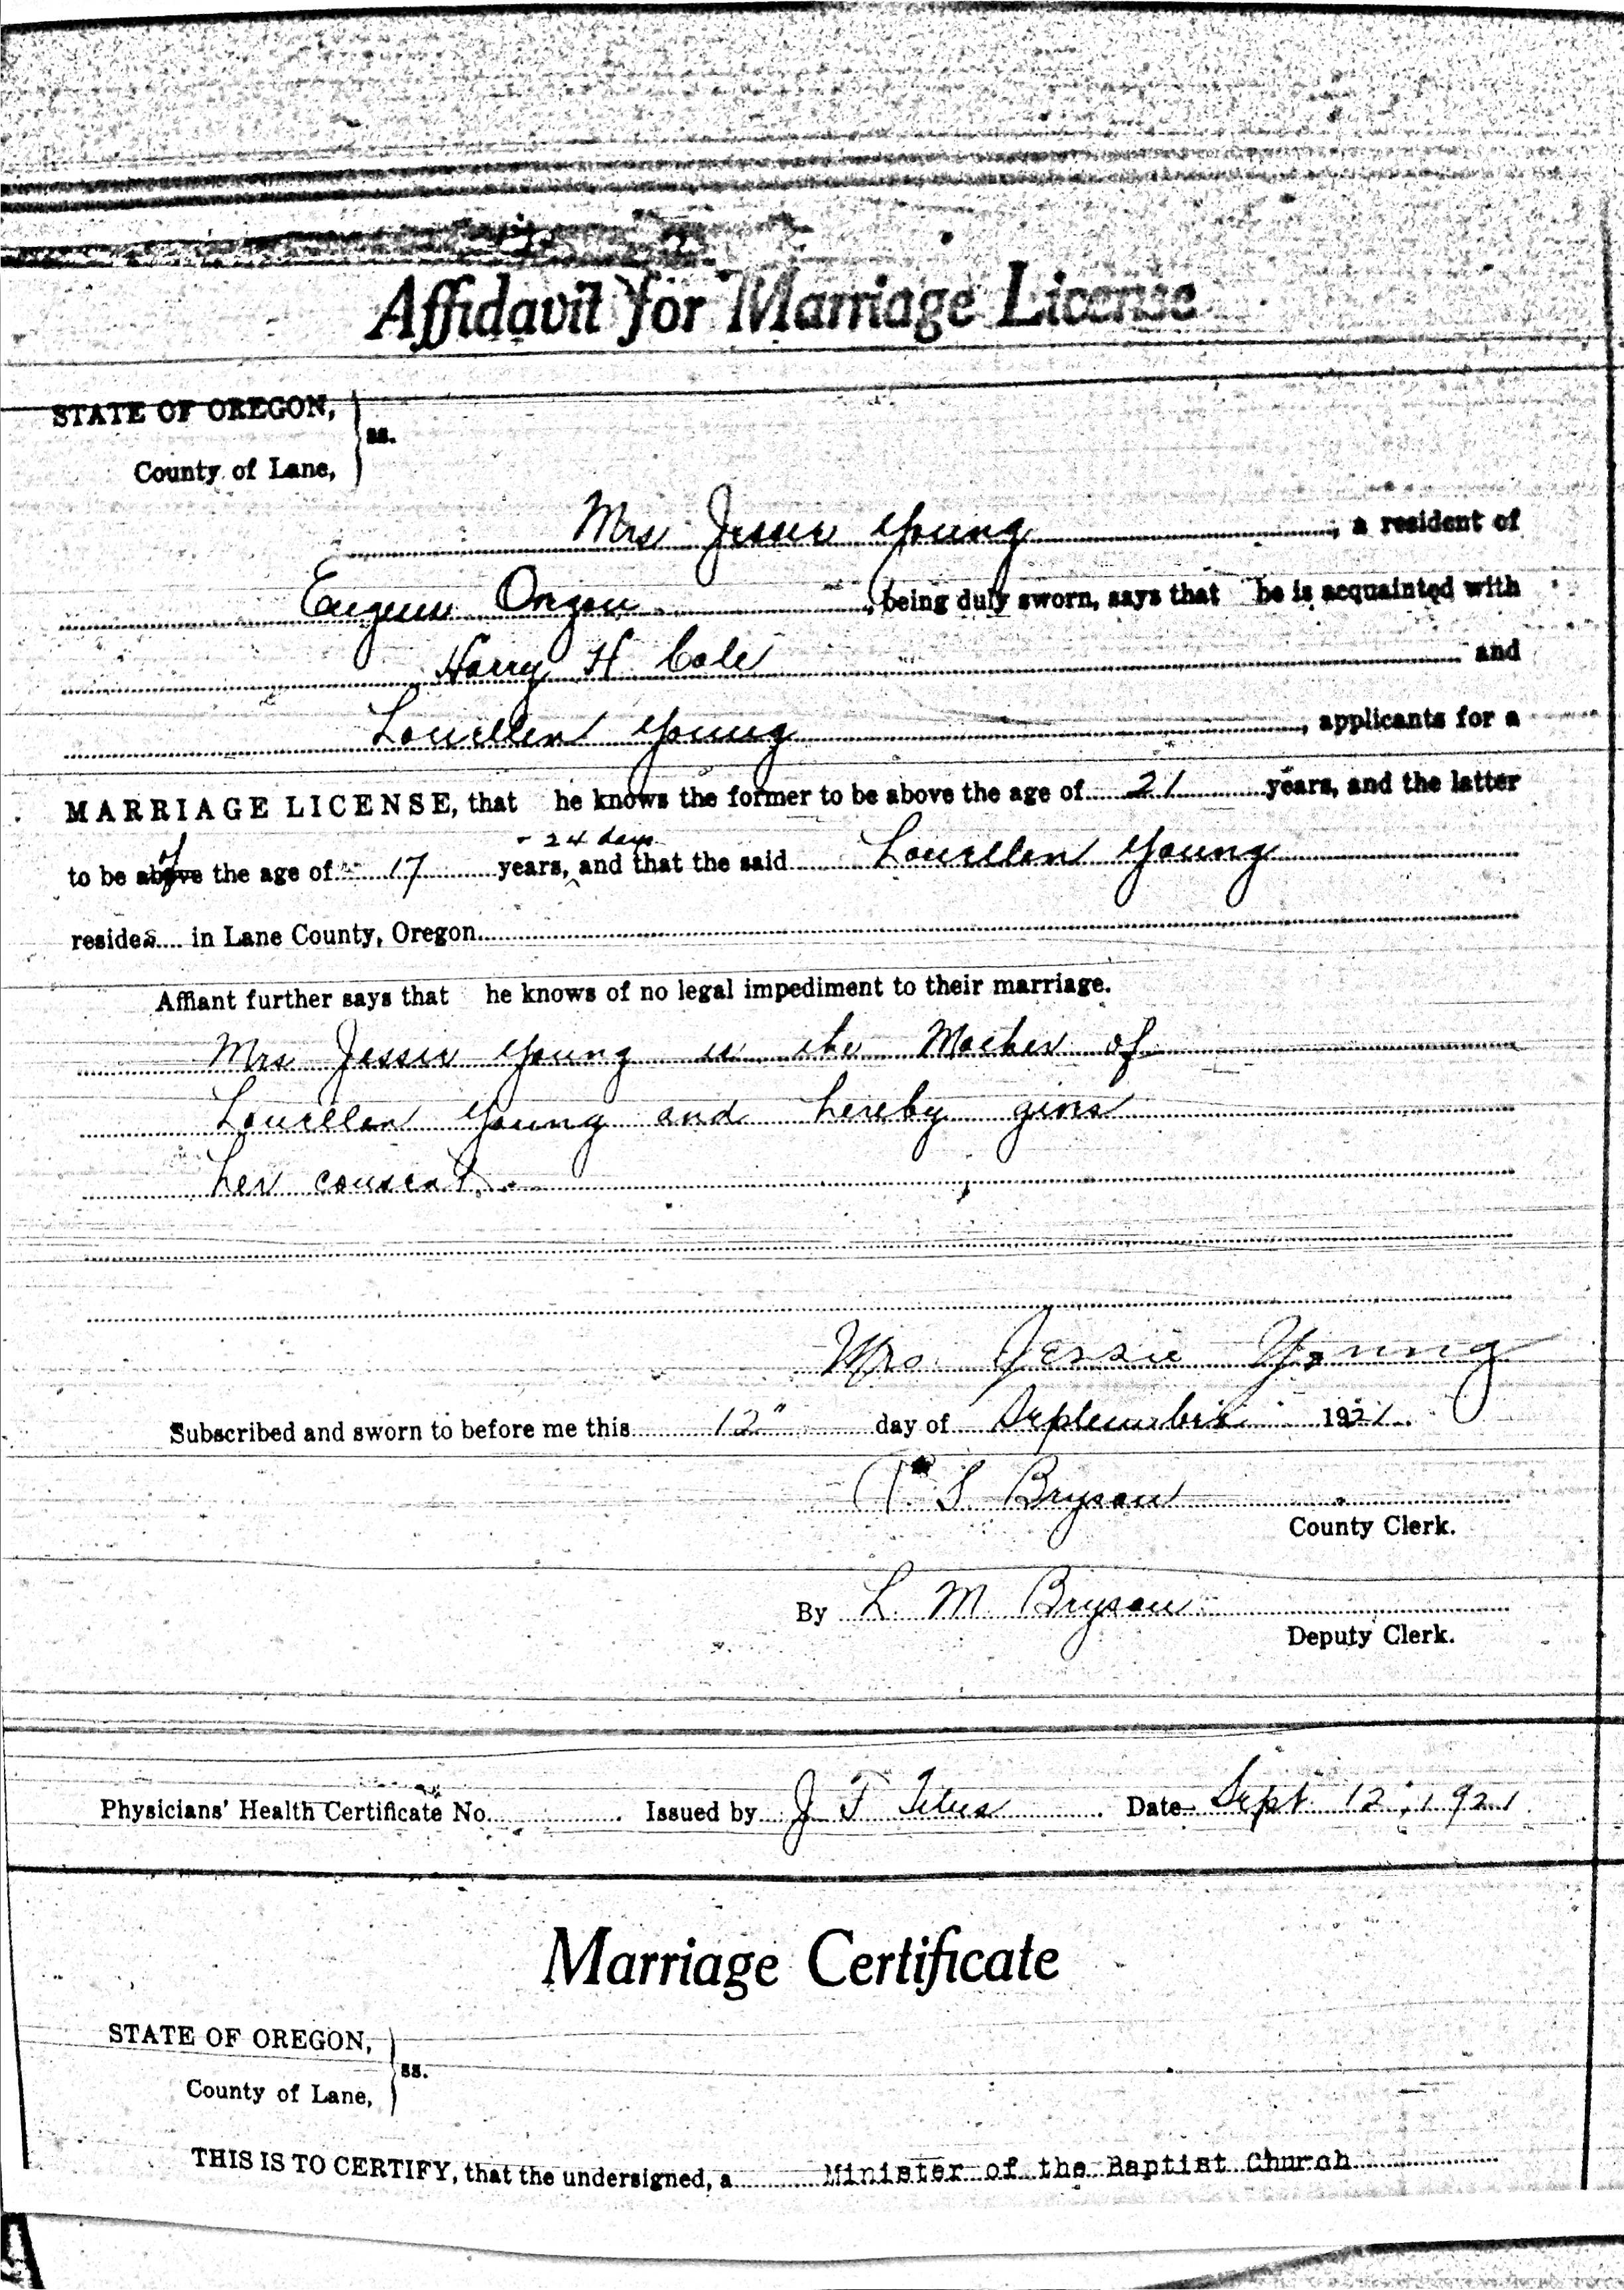 Affidavit for Marriage License
STATE OF OREGON,
ss.
County of Lane,
Mrs Jessie Young, a resident of
Eugene Oregon, being duly sworn, says that he is acquainted with
Harry H Cole and
Louellen Young, applicants for a
MARRIAGE LICENSE, that he knows the former to be above the age of 21 years, and the latter
- 24 days
to be above of the age of 17 years, and that the said Louellen Young
resides in Lane County, Oregon
Affiant further says that he knows of no legal impediment to their marriage.
Mrs Jessie Young is the Mother of
Louellen Young and hereby gives
her consent.
Mrs. Jessie Young
Subscribed and sworn to before me this 12" day of September 1921.
R S Bryson
County Clerk.
By L M Bryson
Deputy Clerk.
Physicians' Health Certificate No. Issued by J F Titus Date Sept 12, 1921
Marriage Certificate
STATE OF OREGON,
ss.
County of Lane,
THIS IS TO CERTIFY, that the undersigned, a Minister of the Baptist Church